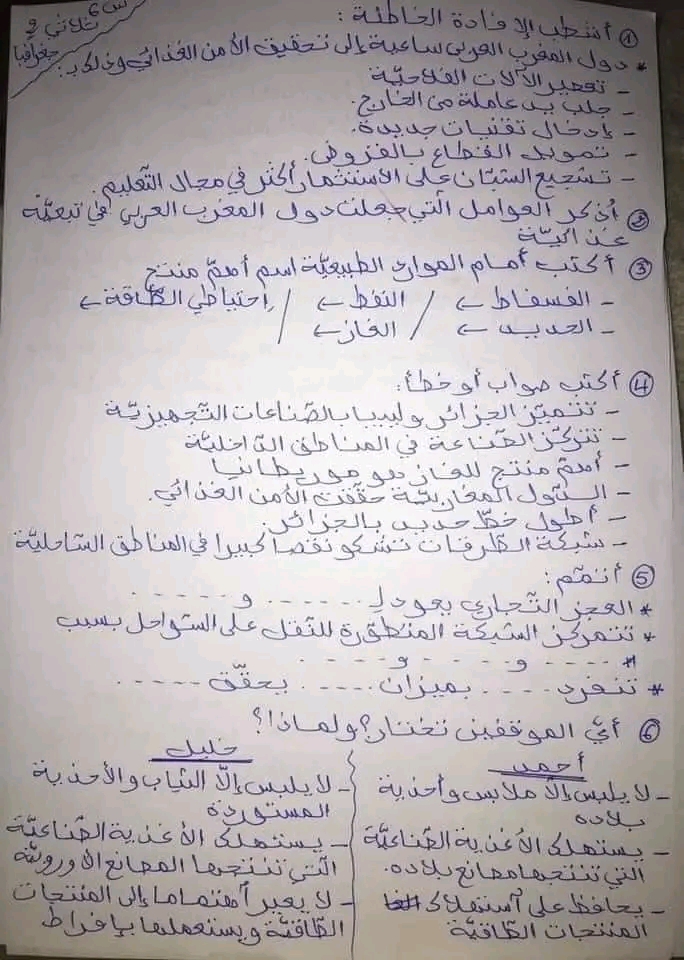 س 6
ثلاثي 2
جغرافيا
① أشطب الإفادة الخاطئة :
* دول المغرب العربي ساعية إلى تحقيق الأمن الغذائي وذلك بـ:
- تعصير الآلات الفلاحيّة
- جلب يد عاملة من الخارج.
- إدخال تقنيات جديدة.
- تمويل القطاع بالقروض.
- تشجيع الشبّان على الاستثمار أكثر في مجال التعليم.
② أذكر العوامل الّتي جعلت دول المغرب العربي في تبعيّة
غذائيّة
③ أكتب أمام الموارد الطبيعيّة اسم أهمّ منتج
- الفسفاط ← / النفط ← / إحتياطي الطّاقة ←
- الحديد ← / الغاز ← /
④ أكتب صواب أو خطأ:
- تتميّز الجزائر وليبيا بالصّناعات التّجهيزيّة
- تتركّز الصّناعة في المناطق الدّاخليّة
- أهمّ منتج للغاز هو موريطانيا
- الدّول المغاربيّة حقّقت الأمن الغذائي.
- أطول خطّ حديد بالجزائر.
- شبكة الطّرقات تشكو نقصا كبيرا في المناطق السّاحليّة
⑤ أتمّم:
* العجز التّجاري يعود لـ ...... و ......
* تتمركز الشبكة المتطوّرة للنّقل على السّواحل بسبب
..... و ..... و .....
* تنفرد ..... بميزان ..... يحقّق .....
⑥ أيّ الموقفين تختار؟ ولماذا؟
أحمد
- لا يلبس إلاّ ملابس وأحذية
بلاده
- يستهلك الأغذية الصّناعيّة
التي تنتجها مصانع بلاده.
- يحافظ على استهلاك
المنتجات الطّاقيّة
خليل
- لا يلبس إلاّ الثياب والأحذية
المستوردة
- يستهلك الأغذية الصّناعيّة
الّتي تنتجها المصانع الأوروبيّة
- لا يعير اهتماما إلى المنتجات
الطّاقيّة ويستعملها بإفراط